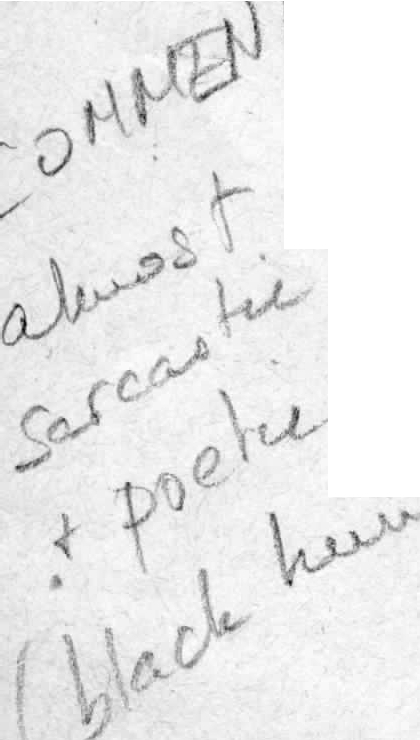 COMMEN
almost
sarcastic
+ poetic
(black hum